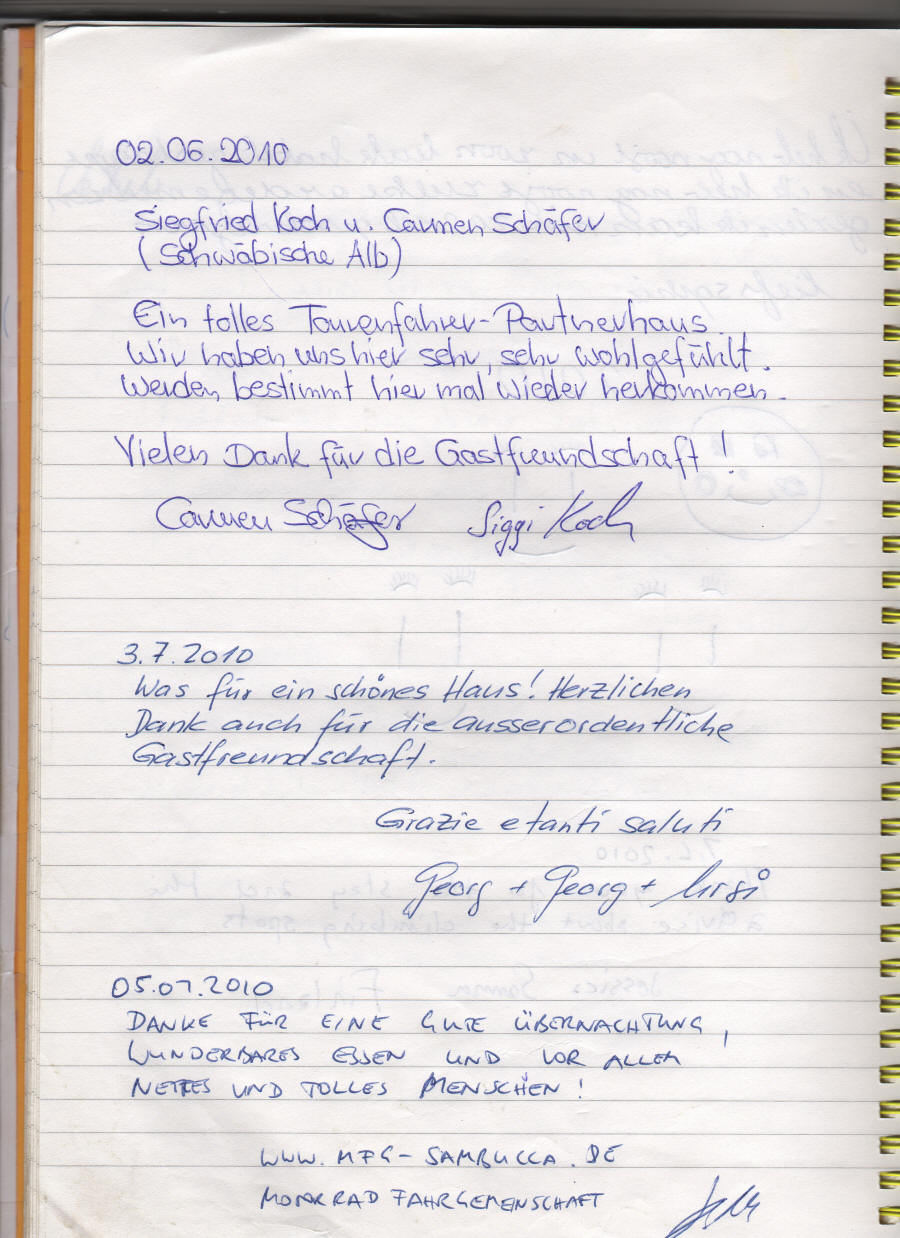 02.06.2010
Siegfried Koch u. Carmen Schäfer
(Schwäbische Alb)
Ein tolles Tourenfahrer-Partnerhaus.
Wir haben uns hier sehr, sehr wohlgefühlt.
Werden bestimmt hier mal wieder herkommen.
Vielen Dank für die Gastfreundschaft!
Carmen Schäfer Siggi Koch
3.7.2010
Was für ein schönes Haus! Herzlichen
Dank auch für die ausserordentliche
Gastfreundschaft.
Grazie e tanti saluti
Georg + Georg + Ursi
05.07.2010
DANKE FÜR EINE GUTE ÜBERNACHTUNG,
WUNDERBARES ESSEN UND VOR ALLEM
NETTES UND TOLLES MENSCHEN!
WWW.MFG-SAMBUCCA.DE
MOTORRAD FAHRGEMENSCHAFT